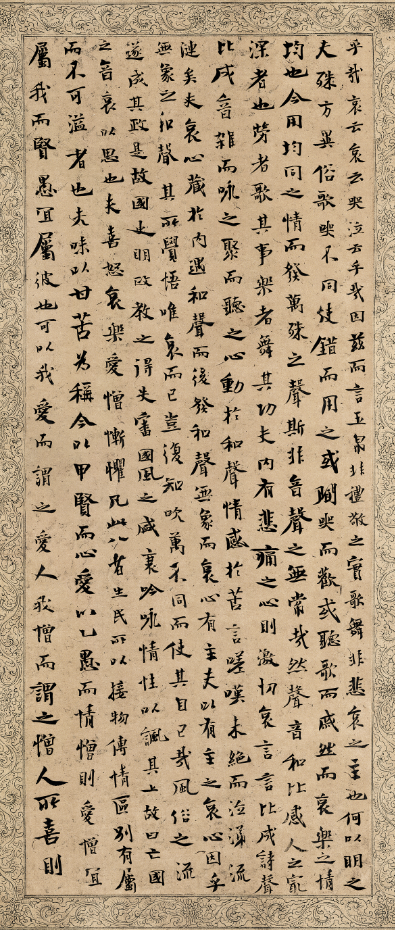 乎哉哀云哀云哭泣云乎哉因茲而言玉帛非禮敬之實歌舞非悲哀之主也何以明之
夫殊方異俗歌哭不同使錯而用之或聞哭而歡或聽歌而慼然而哀樂之情
均也今用均同之情而發萬殊之聲斯非音聲之無常哉然聲音和比感人之最
深者也勞者歌其事樂者舞其功夫內有悲痛之心則激切哀言言比成詩聲
比成音雜而咏之聚而聽之心動於和聲情感於苦言嗟嘆未絕而泣涕流
漣矣夫哀心藏於內遇和聲而後發和聲無象而哀心有主夫以有主之哀心因乎
無象之和聲其所覺悟唯哀而已豈復知吹萬不同而使其自已哉風俗之流
遂成其政是故國史明政教之得失審國風之盛衰吟咏情性以諷其上故曰亡國
之音哀以思也夫喜怒哀樂愛憎慚懼凡此八者生民所以接物傳情區別有屬
而不可溢者也夫味以甘苦為稱今以甲賢而心愛以乙愚而情憎則愛憎宜
屬我而賢愚宜屬彼也可以我愛而謂之愛人我憎而謂之憎人所喜則